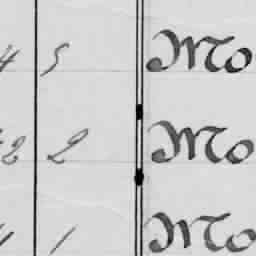 4 5 Mo
2 2 Mo
1 Mo